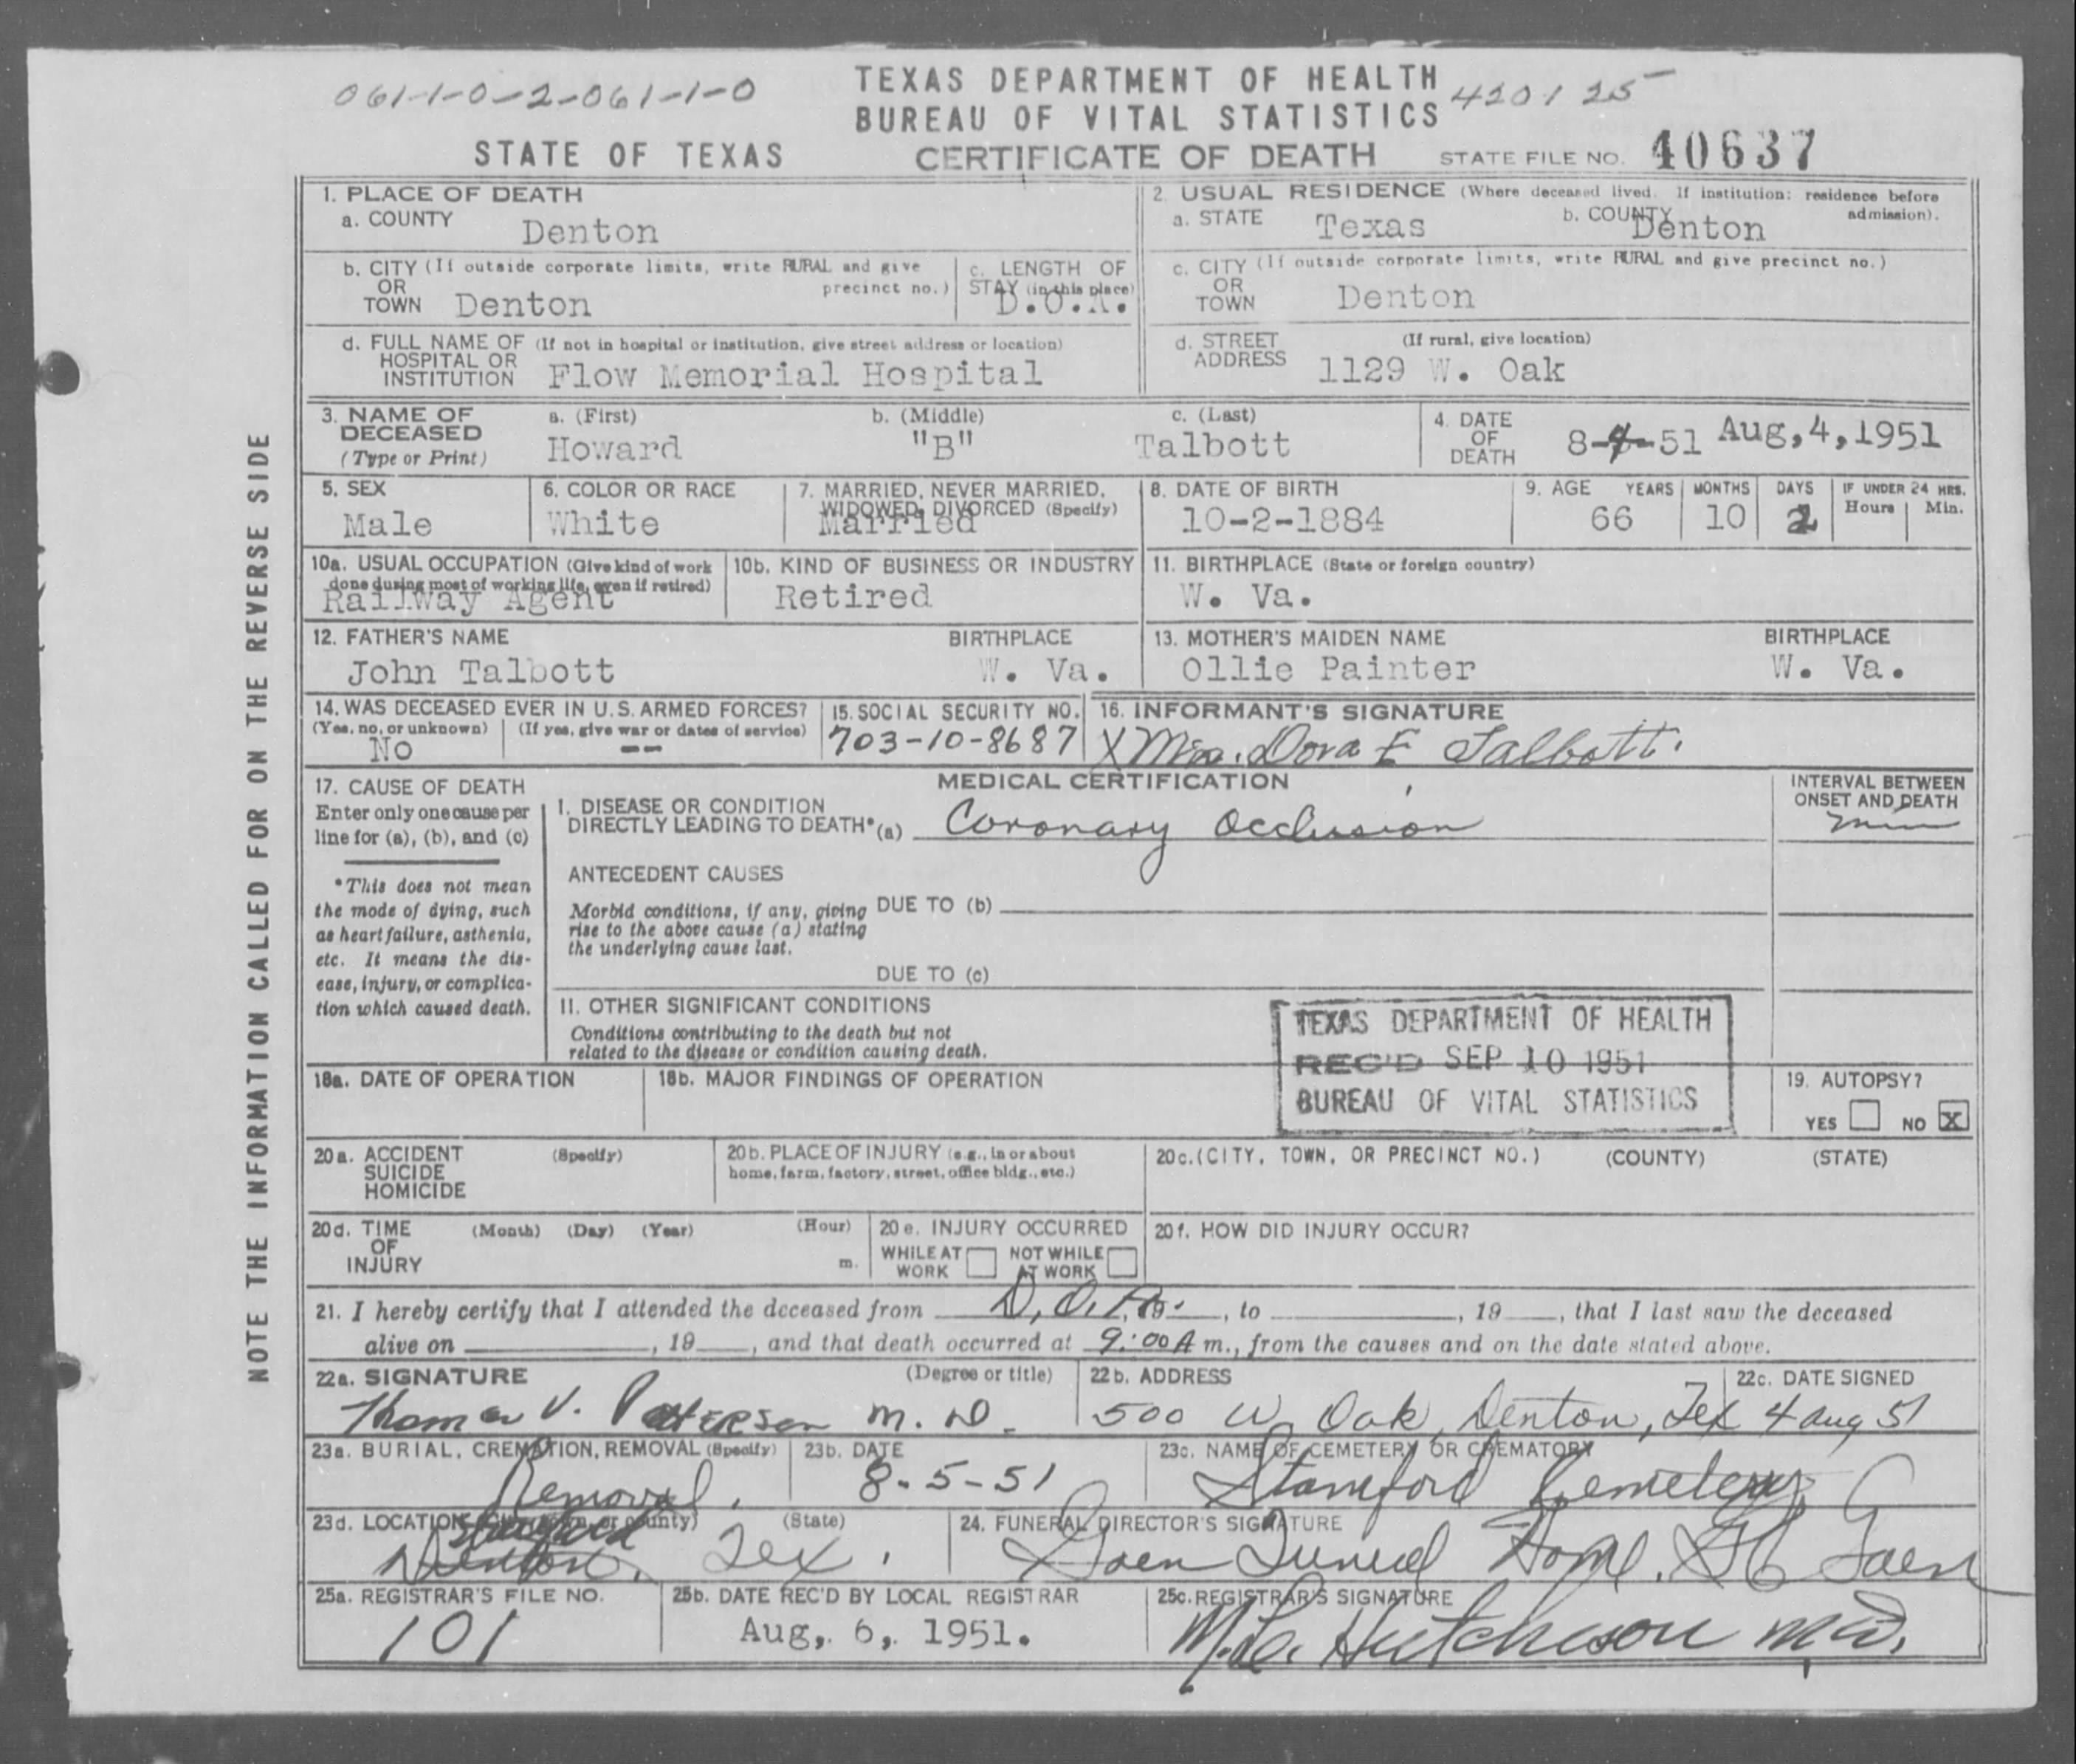 061-1-0-2-061-1-0
TEXAS DEPARTMENT OF HEALTH
420125
BUREAU OF VITAL STATISTICS
STATE OF TEXAS CERTIFICATE OF DEATH STATE FILE NO. 40637
NOTE THE INFORMATION CALLED FOR ON THE REVERSE SIDE
1. PLACE OF DEATH
a. COUNTY Denton
2. USUAL RESIDENCE (Where deceased lived. If institution: residence before admission).
a. STATE Texas b. COUNTY Denton
b. CITY (If outside corporate limits, write RURAL and give precinct no.)
OR
TOWN Denton
c. LENGTH OF
STAY (in this place)
D.O.A.
c. CITY (If outside corporate limits, write RURAL and give precinct no.)
OR
TOWN Denton
d. FULL NAME OF (If not in hospital or institution, give street address or location)
HOSPITAL OR
INSTITUTION Flow Memorial Hospital
d. STREET (If rural, give location)
ADDRESS 1129 W. Oak
3. NAME OF a. (First) b. (Middle) c. (Last)
DECEASED
(Type or Print) Howard "B" Talbott
4. DATE
OF
DEATH 8-4-51 Aug, 4, 1951
5. SEX
Male
6. COLOR OR RACE
White
7. MARRIED, NEVER MARRIED,
WIDOWED, DIVORCED (Specify)
Married
8. DATE OF BIRTH
10-2-1884
9. AGE YEARS MONTHS DAYS IF UNDER 24 HRS.
Hours Min.
66 10 2
10a. USUAL OCCUPATION (Give kind of work
done during most of working life, even if retired)
Railway Agent
10b. KIND OF BUSINESS OR INDUSTRY
Retired
11. BIRTHPLACE (State or foreign country)
W. Va.
12. FATHER'S NAME BIRTHPLACE
John Talbott W. Va.
13. MOTHER'S MAIDEN NAME BIRTHPLACE
Ollie Painter W. Va.
14. WAS DECEASED EVER IN U.S. ARMED FORCES?
(Yes, no, or unknown) (If yes, give war or dates of service)
No --
15. SOCIAL SECURITY NO.
703-10-8687
16. INFORMANT'S SIGNATURE
X Mrs. Dora E Talbott.
17. CAUSE OF DEATH
Enter only one cause per
line for (a), (b), and (c)
*This does not mean
the mode of dying, such
as heart failure, asthenia,
etc. It means the dis-
ease, injury, or complica-
tion which caused death.
MEDICAL CERTIFICATION
I. DISEASE OR CONDITION
DIRECTLY LEADING TO DEATH* (a) Coronary Occlusion
INTERVAL BETWEEN
ONSET AND DEATH
ANTECEDENT CAUSES
Morbid conditions, if any, giving DUE TO (b)
rise to the above cause (a) stating
the underlying cause last.
DUE TO (c)
II. OTHER SIGNIFICANT CONDITIONS
Conditions contributing to the death but not
related to the disease or condition causing death.
TEXAS DEPARTMENT OF HEALTH
REC'D SEP 10 1951
BUREAU OF VITAL STATISTICS
18a. DATE OF OPERATION
18b. MAJOR FINDINGS OF OPERATION
19. AUTOPSY?
YES NO X
20a. ACCIDENT (Specify)
SUICIDE
HOMICIDE
20b. PLACE OF INJURY (e.g., in or about
home, farm, factory, street, office bldg., etc.)
20c. (CITY, TOWN, OR PRECINCT NO.) (COUNTY) (STATE)
20d. TIME (Month) (Day) (Year) (Hour)
OF
INJURY m.
20e. INJURY OCCURRED
WHILE AT NOT WHILE
WORK AT WORK
20f. HOW DID INJURY OCCUR?
21. I hereby certify that I attended the deceased from D.O.A. 19 , to , 19 , that I last saw the deceased
alive on , 19 , and that death occurred at 9:00A m., from the causes and on the date stated above.
22a. SIGNATURE (Degree or title)
Thomas V. Patterson M.D.
22b. ADDRESS
500 W. Oak, Denton, Tex
22c. DATE SIGNED
4 Aug 51
23a. BURIAL, CREMATION, REMOVAL (Specify)
Removal.
23b. DATE
8-5-51
23c. NAME OF CEMETERY OR CREMATORY
Stamford Cemetery
23d. LOCATION (City, town, or county) (State)
Stamford
Denton, Tex.
24. FUNERAL DIRECTOR'S SIGNATURE
Goen Funeral Home.
25a. REGISTRAR'S FILE NO.
101
25b. DATE REC'D BY LOCAL REGISTRAR
Aug, 6, 1951.
25c. REGISTRAR'S SIGNATURE
M.L. Hutcheson MD.